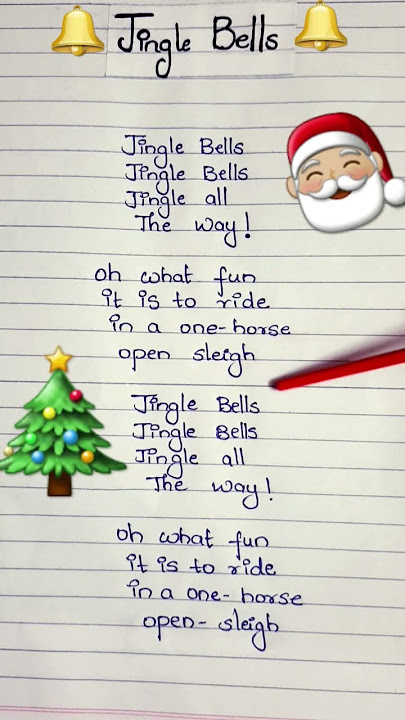 Jingle Bells
Jingle Bells
Jingle Bells
Jingle all
The way!
oh what fun
it is to ride
in a one-horse
open sleigh
Jingle Bells
Jingle Bells
Jingle all
The way!
oh what fun
it is to ride
in a one-horse
open-sleigh